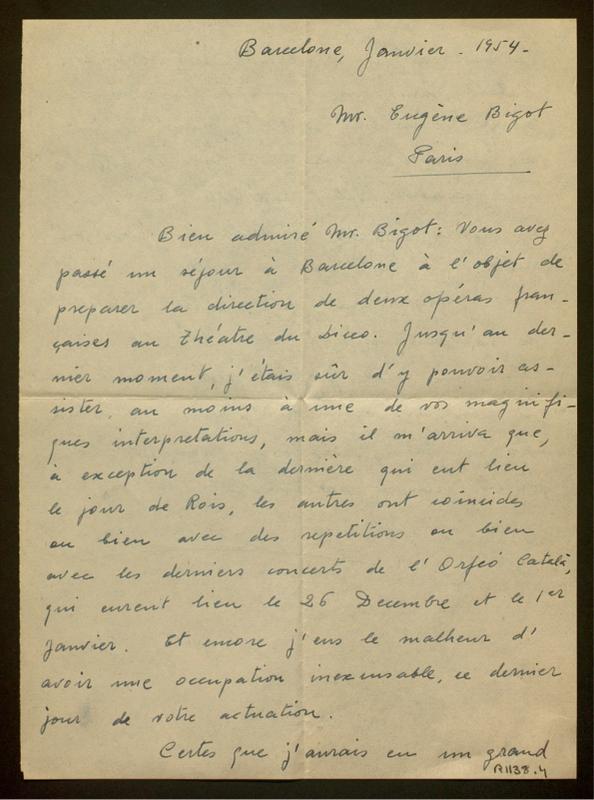 Barcelone, Janvier - 1954 -
Mr. Eugène Bigot
Paris
Bien admiré Mr. Bigot: Vous avez
passé un séjour à Barcelone à l'objet de
preparer la direction de deux opéras fran-
çaises au Théatre du Liceo. Jusqu'au der-
nier moment, j'étais sûr d'y pouvoir as-
sister, au moins à une de vos magnifi-
ques interpretations, mais il m'arriva que,
à exception de la dernière qui eut lieu
le jour de Rois, les autres ont coincides
ou bien avec des repetitions ou bien
avec les derniers concerts de l'Orfeó Català,
qui eurent lieu le 26 Decembre et le 1er
Janvier. Et encore j'eus le malheur d'
avoir une occupation inexcusable, ce dernier
jour de votre actuation.
Certes que j'aurais eu un grand
A1138.4